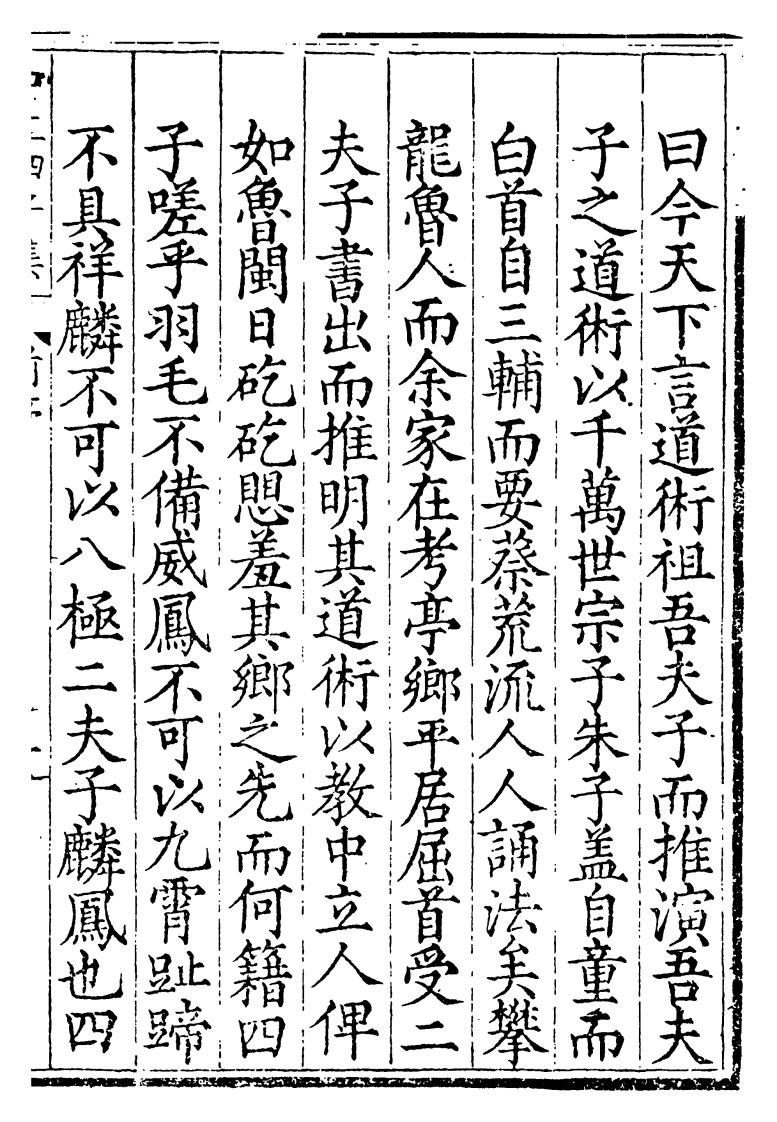 曰今天下言道術祖吾夫子而推演吾夫
子之道術以千萬世宗子朱子盖自童而
白首自三輔而要蔡荒流人人誦法矣攀
龍魯人而余家在考亭鄉平居屈首受二
夫子書出而推明其道術以教中立人俾
如魯閩日矻矻思羞其鄉之先而何籍四
子嗟乎羽毛不備威鳳不可以九霄趾蹄
不具祥麟不可以八極二夫子麟鳳也四